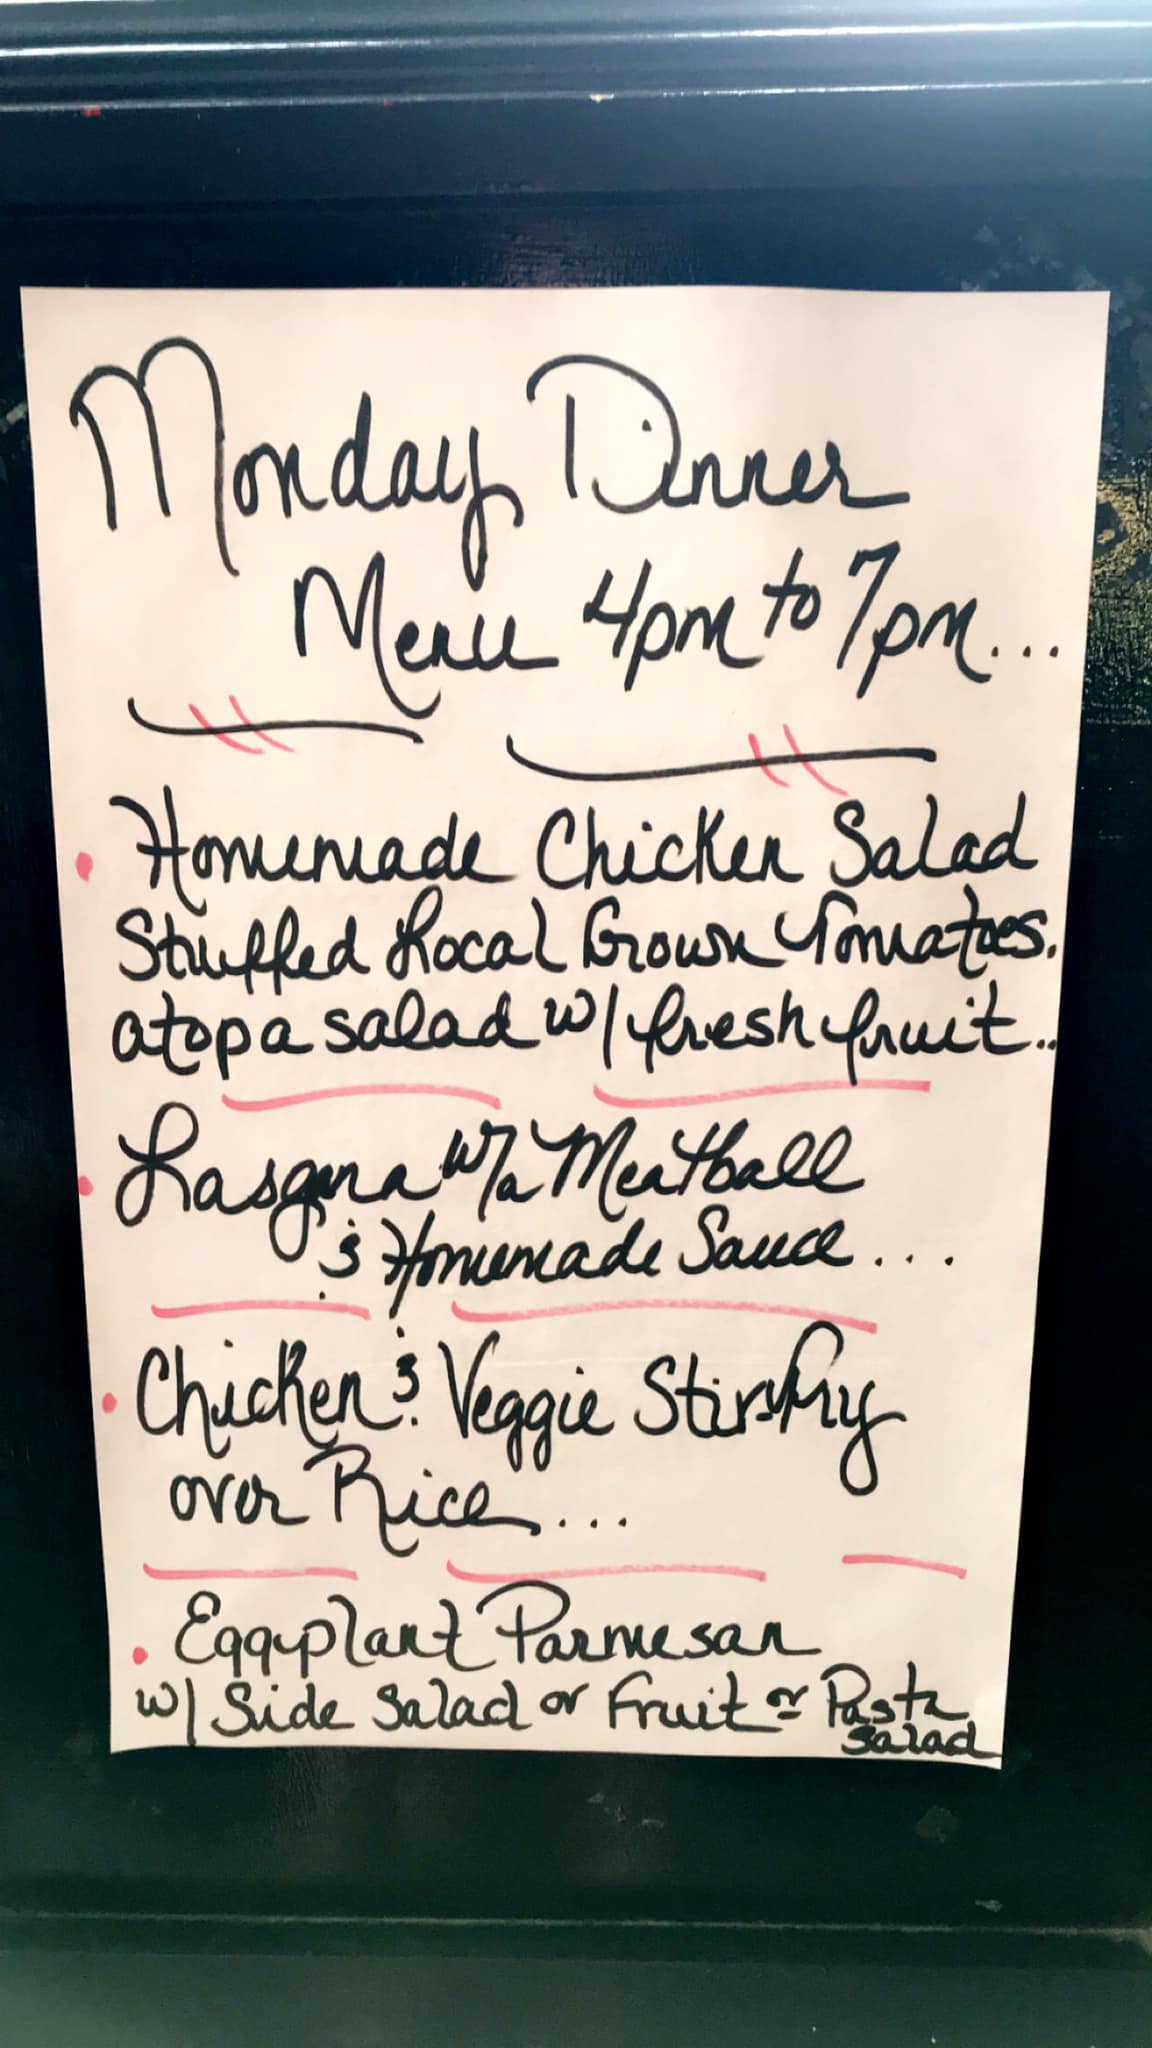 Monday Dinner
Menu 4pm to 7pm...
• Homemade Chicken Salad
Stuffed Local Grown Tomatoes.
atop a salad w/ fresh fruit..
• Lasgna w/a Meatball
& Homemade Sauce...
• Chicken & Veggie Stirfry
over Rice...
• Eggplant Parmesan
w/ Side Salad or Fruit or Pasta
Salad